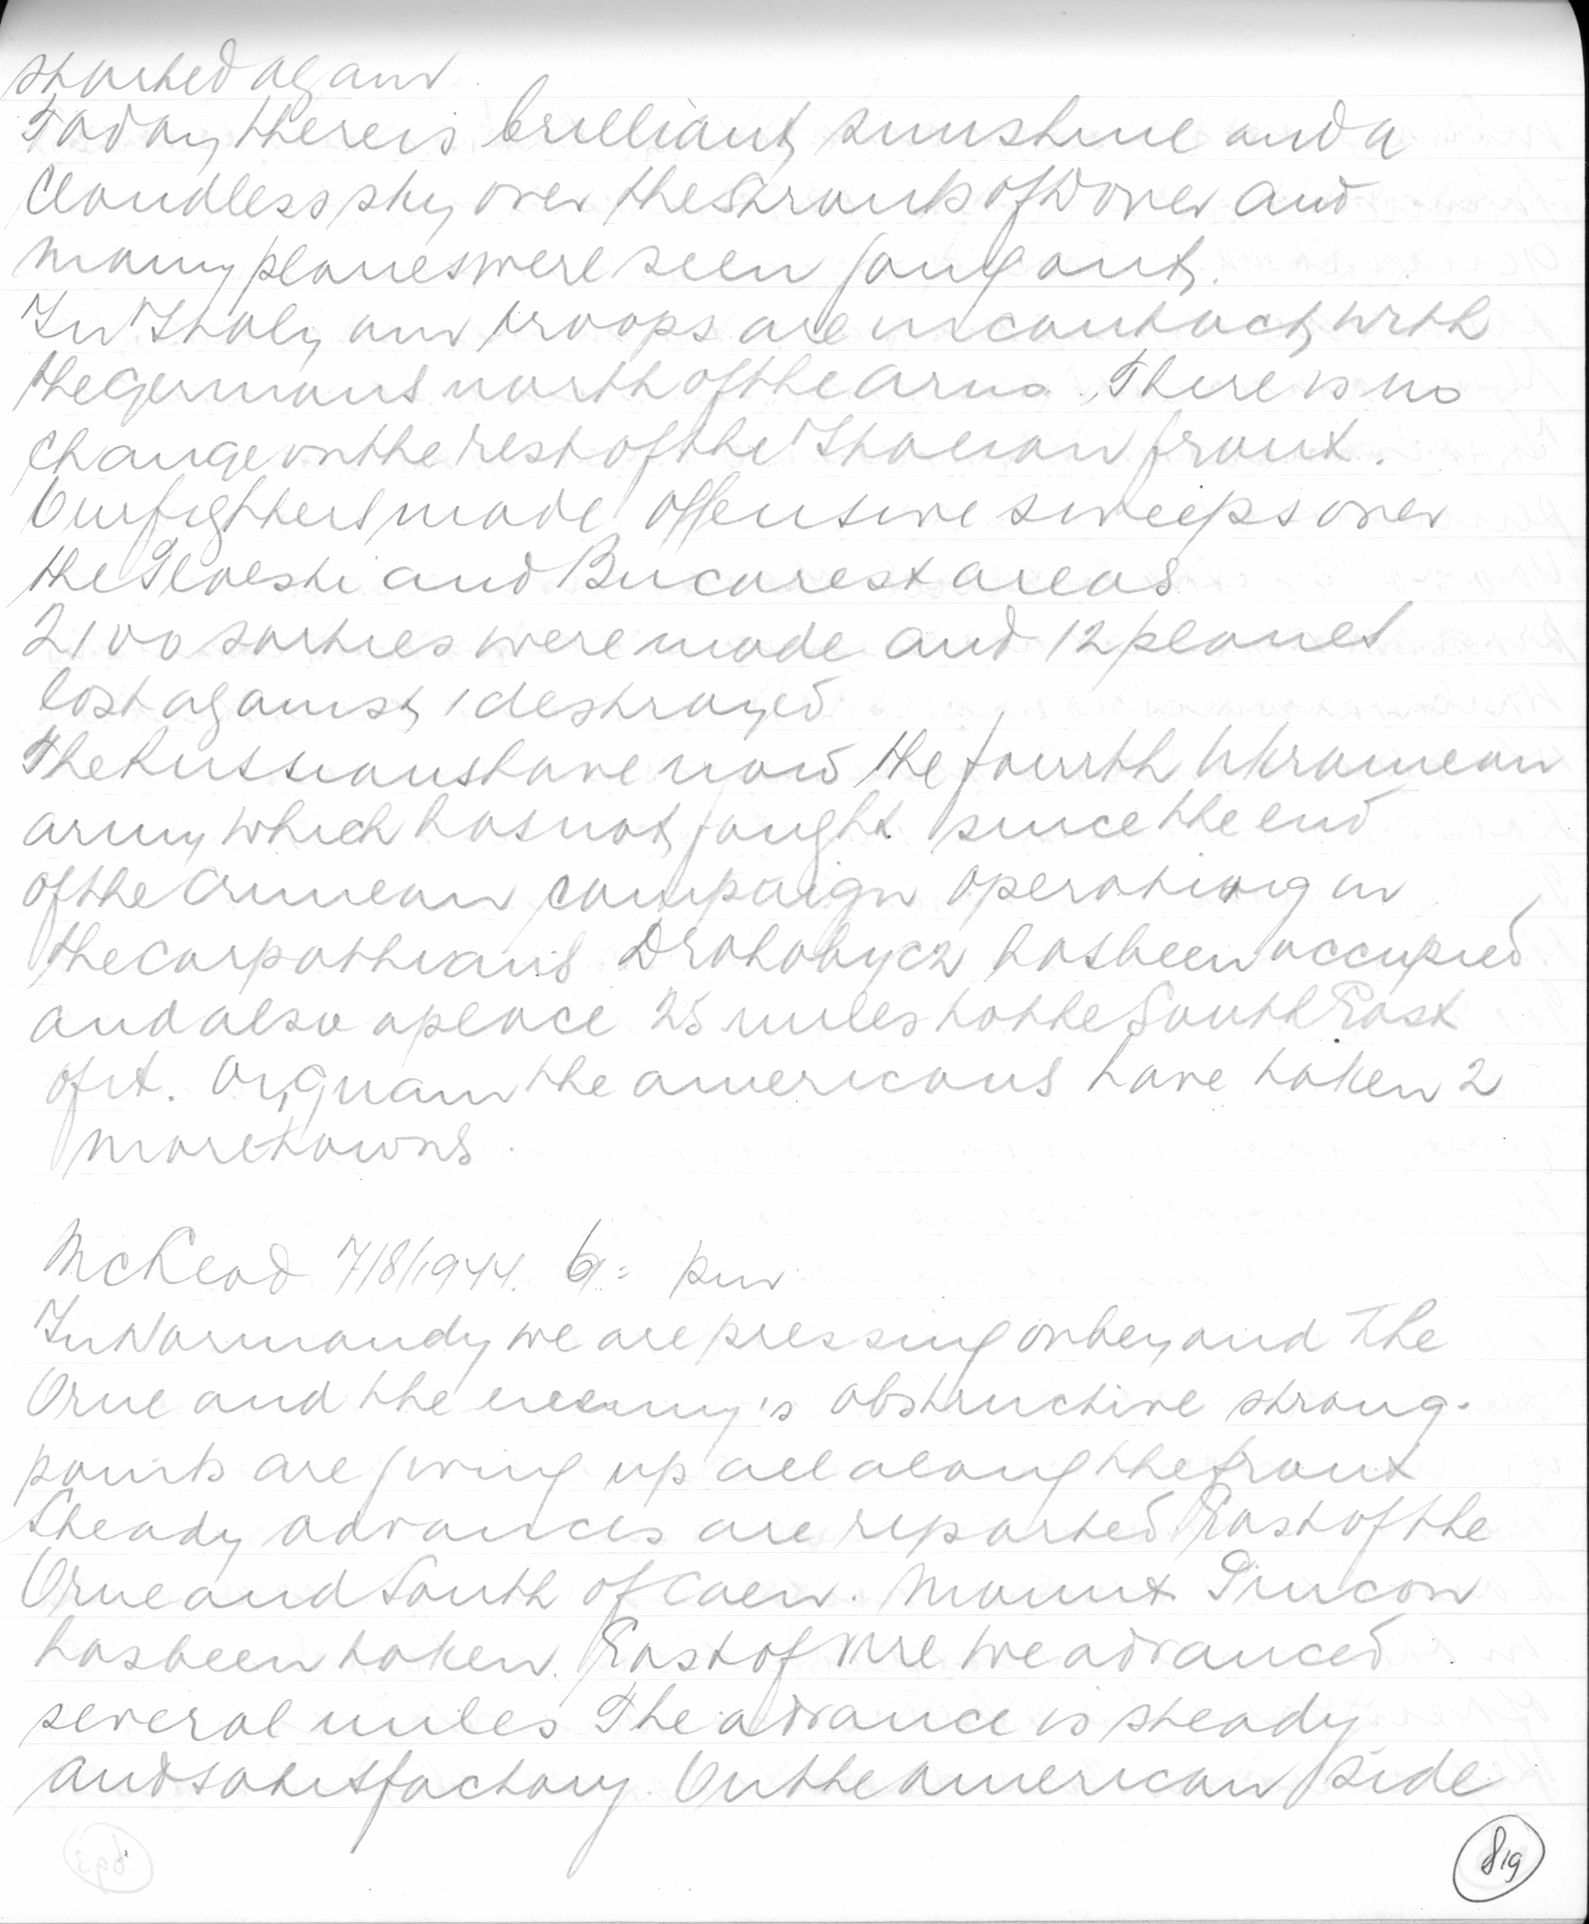 started again
Today there is brilliant sunshine and a
Cloudless sky over the Straits of Dover and
many planes were seen going out.
In Italy our troops are in contact with
the Germans north of the Arno. There is no
change on the rest of the Italian front.
Our fighters made offensive sweeps over
the Ploesti and Bucarest areas
2100 sorties were made and 12 planes
lost against 1 destroyed
The Russians have now the fourth Ukrainean
army which has not fought since the end
of the Crimean campaign operating in
the Carpathians Drohobycz has been occupied
and also a place 25 miles to the South East
of it. On Guam the americans have taken 2
more towns
7/8/1944. 6 = pm
In Normandy we are pressing on beyond The
Orne and the enemy's obstructive strong-
points are giving up all along the front
Steady advances are reported East of the
Orne and South of Caen. Mount Pincon
has been taken. East of Vire we advanced
several miles The advance is steady
and satisfactory. On the American side
819